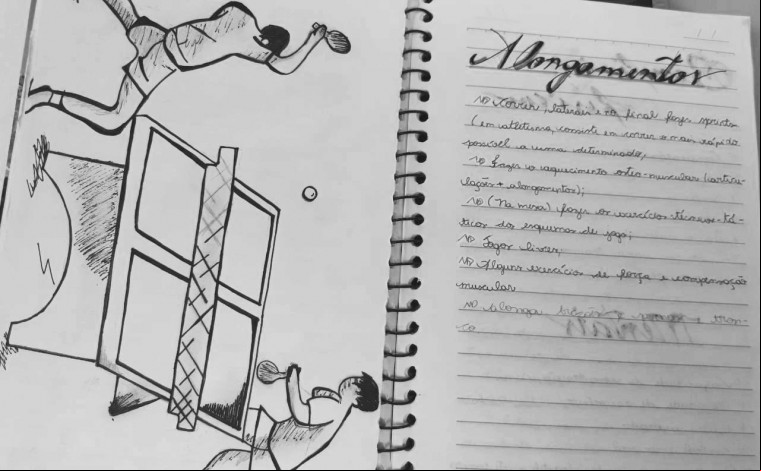 Alongamentos
Correr, laterais e no final fazer sprints
(em atletismo, consiste em correr o mais rápido
possível a uma determinado;
fazer o aquecimento osteo-muscular (articu-
lações + alongamentos);
(Na mesa) fazer os exercícios técnicos-tá-
ticos dos esquemas de jogo;
Jogos livres;
Alguns exercícios de força e compensação
muscular
Alonga e tron-
co